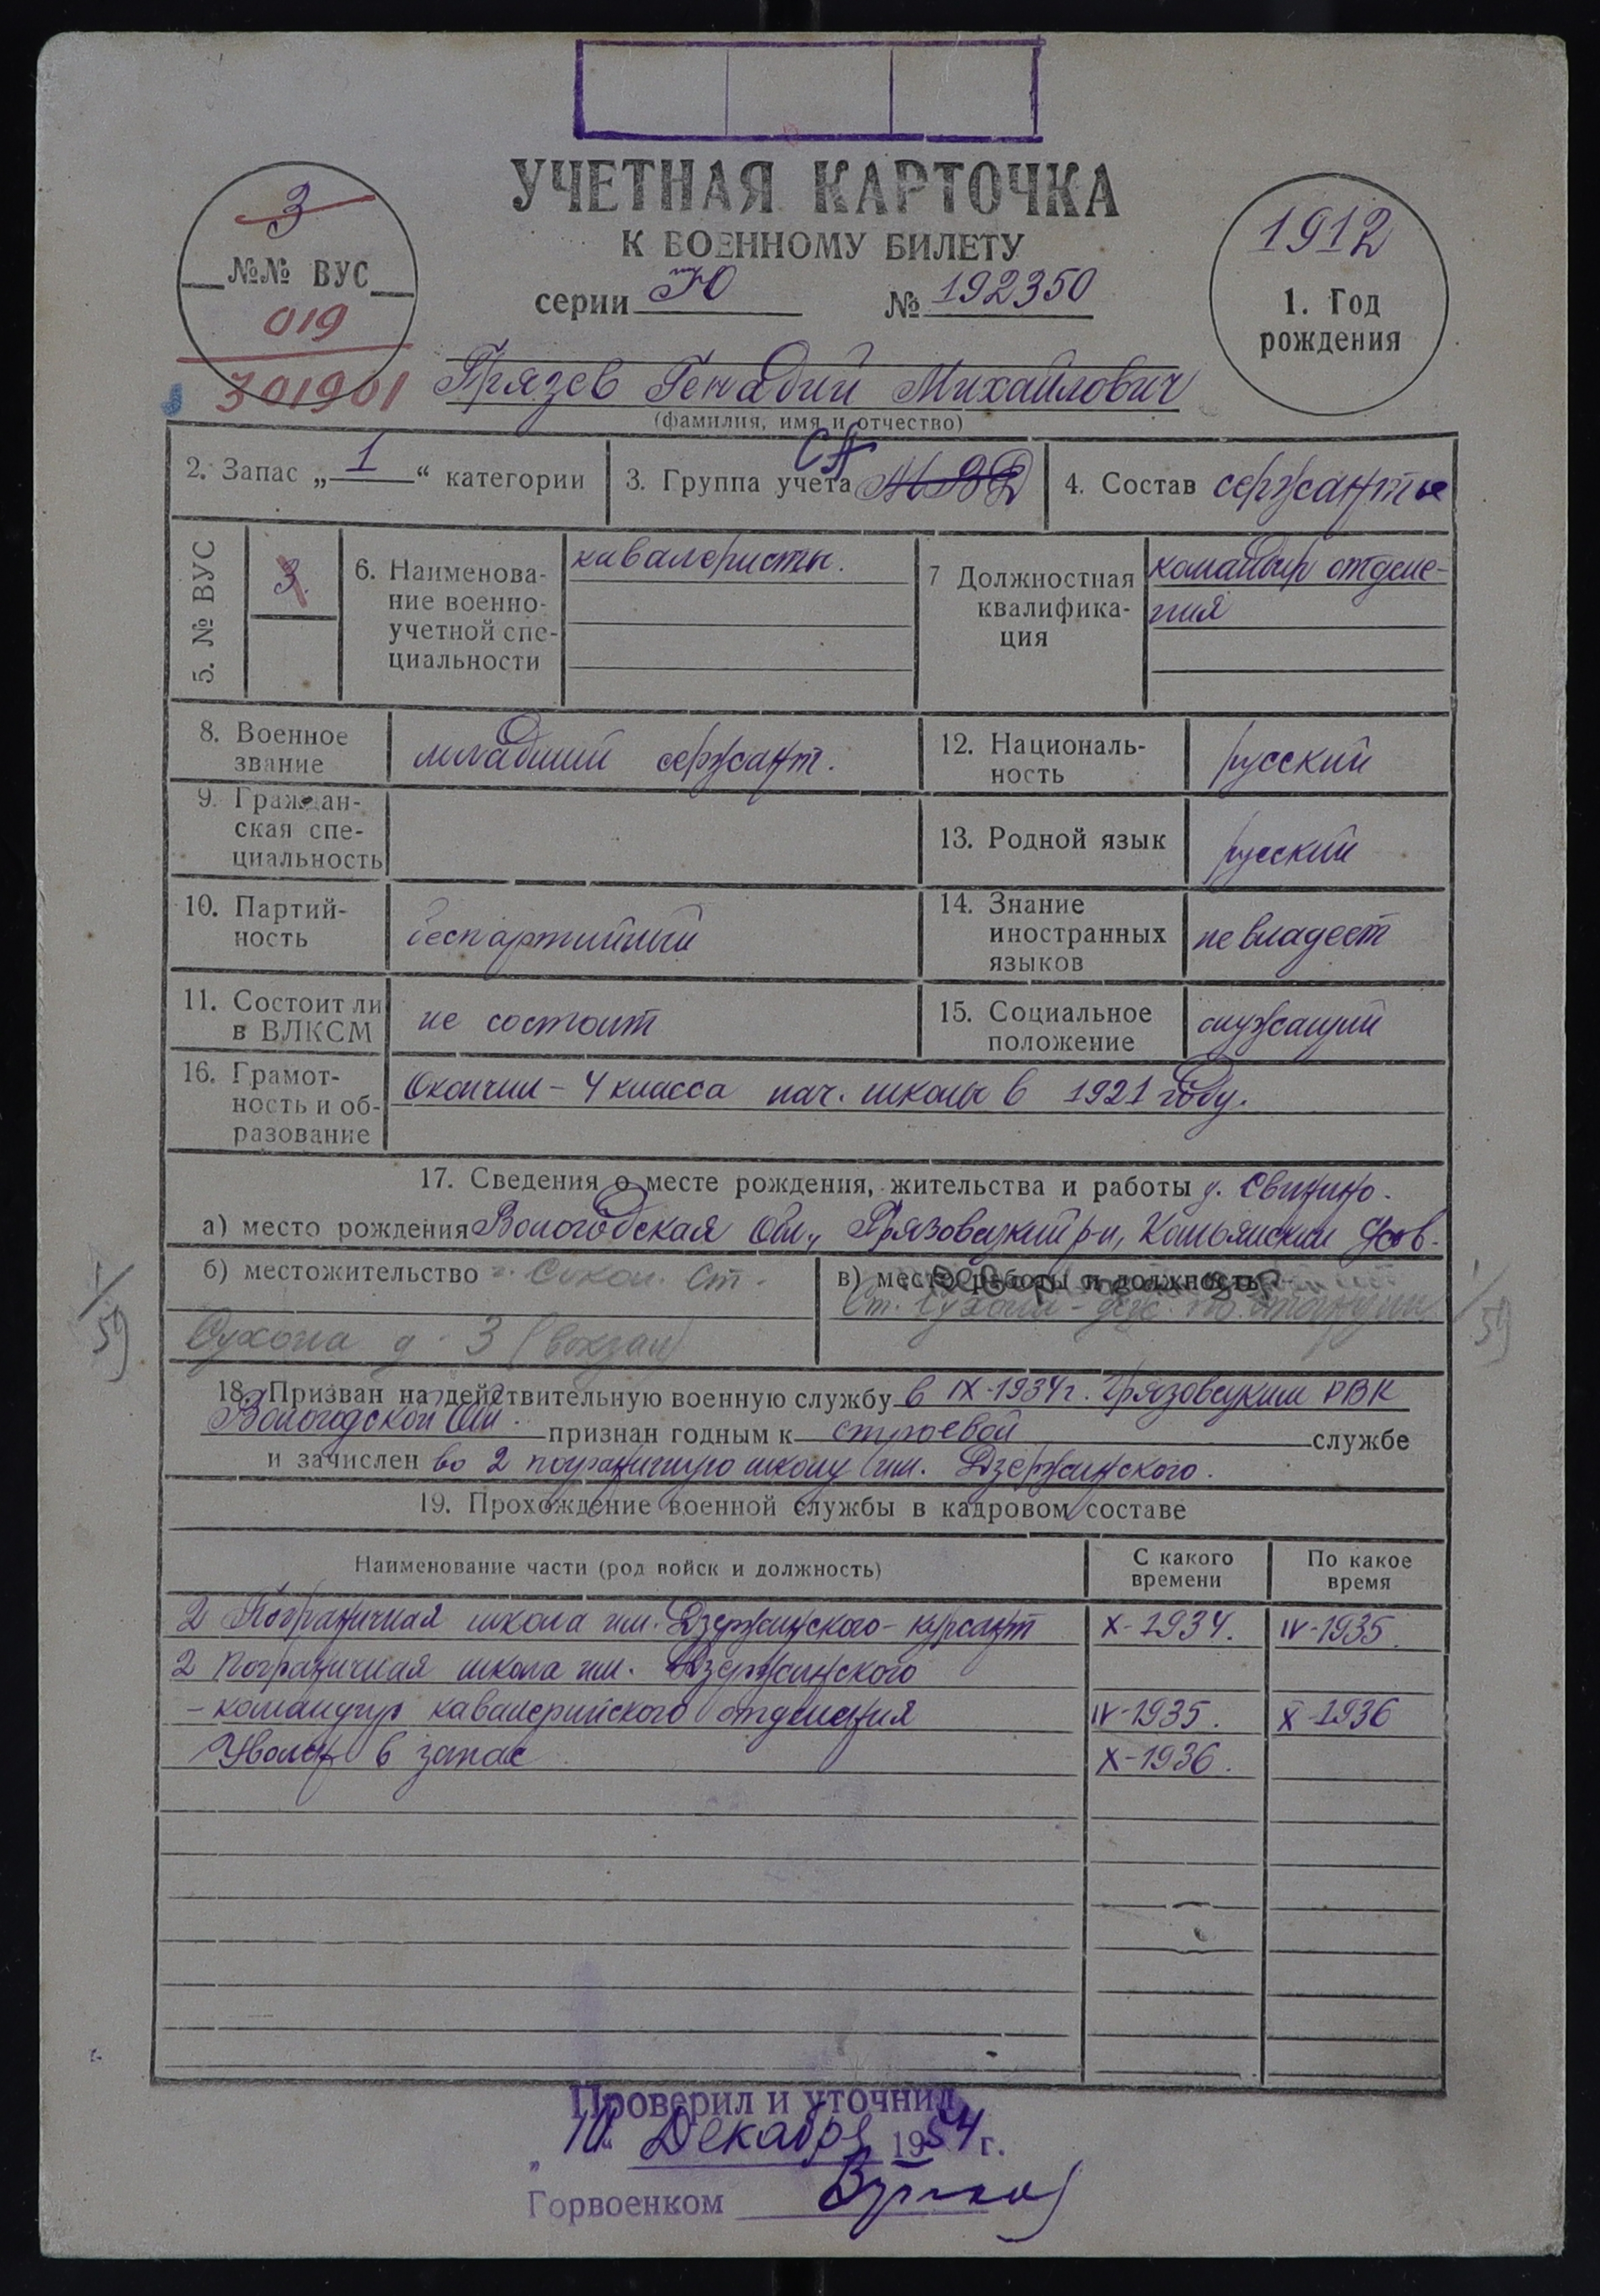 УЧЕТНАЯ КАРТОЧКА
К ВОЕННОМУ БИЛЕТУ
серии Ю № 192350
3
№№ ВУС
019
301901
1912
1. Год
рождения
Грязев Генадий Михайлович
(фамилия, имя и отчество)
2. Запас „ 1 “ категории
3. Группа учета СА МВД
4. Состав сержанты
5. № ВУС
3.
6. Наименова-
ние военно-
учетной спе-
циальности
кавалеристы.
7 Должностная
квалифика-
ция
командир отделе-
ния
8. Военное
звание
младший сержант.
12. Националь-
ность
русский
9. Граждан-
ская спе-
циальность
13. Родной язык
русский
10. Партий-
ность
беспартийный
14. Знание
иностранных
языков
не владеет
11. Состоит ли
в ВЛКСМ
не состоит
15. Социальное
положение
служащий
16. Грамот-
ность и об-
разование
Окончил - 4 класса нач. школы в 1921 году.
17. Сведения о месте рождения, жительства и работы д. Свинино.
а) место рождения Вологодская Обл., Грязовецкий р-н,
б) местожительство г. Сокол. Ст.
Сухона д. 3 (вокзал)
в) место работы и должность
Ст. Сухона - деж. по станции
1/59
1/59
18. Призван на действительную военную службу в IX-1934 г. Грязовецким РВК
Вологодской Обл. признан годным к строевой службе
и зачислен во 2 пограничную школу им. Дзержинского.
19. Прохождение военной службы в кадровом составе
Наименование части (род войск и должность)
С какого
времени
По какое
время
2 Пограничная школа им. Дзержинского - курсант X-1934. IV-1935.
2 пограничная школа им. Дзержинского
- командир кавалерийского отделения IV-1935. X-1936
Уволен в запас X-1936.
Проверил и уточнил
„ 10 “ Декабря 1954 г.
Горвоенком